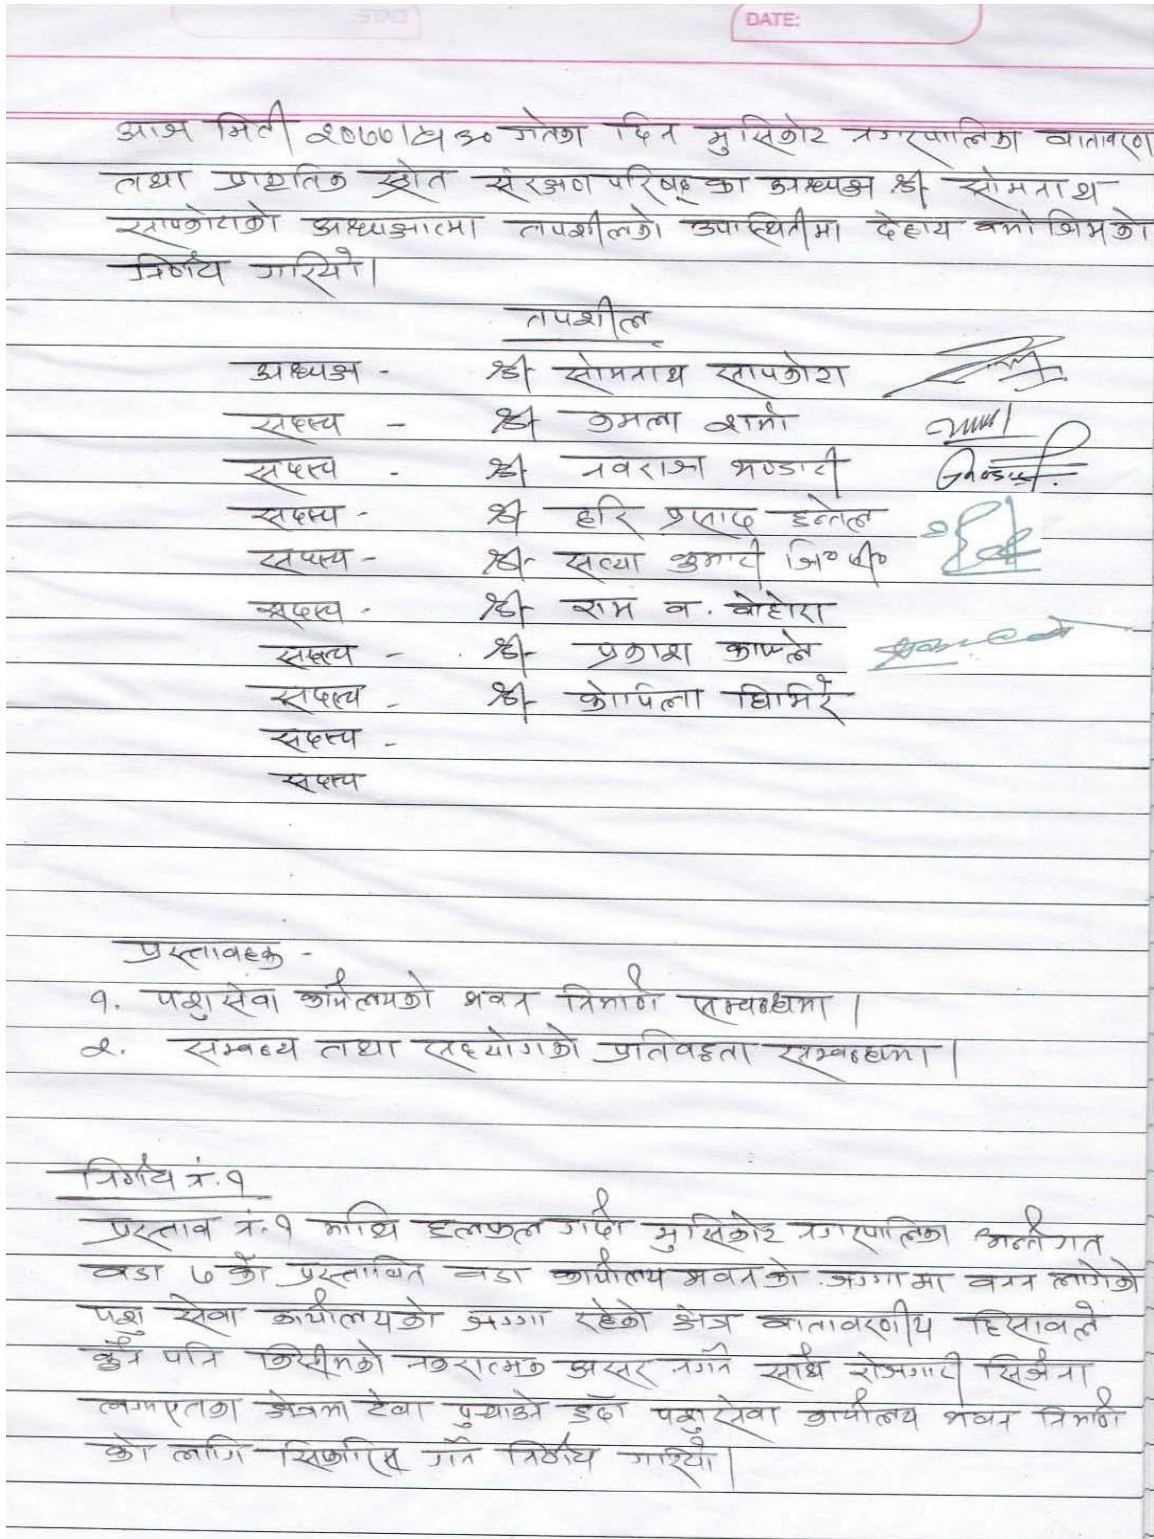 DATE:
आज मिती २०७७।५।३० गतेका दिन मुसिकोट नगरपालिका वातावरण
तथा प्राकृतिक स्रोत संरक्षण परिषद्का अध्यक्ष श्री सोमनाथ
सापकोटाको अध्यक्षतामा तपशीलको उपस्थितीमा देहाय बमोजिमको
निर्णय गरियो।
तपशील
अध्यक्ष - श्री सोमनाथ सापकोटा
सदस्य - श्री कमला शर्मा
सदस्य - श्री नवराज भण्डारी
सदस्य - श्री हरि प्रसाद
सदस्य - श्री सत्या कुमारी जि० सी०
सदस्य - श्री राम ब. बोहोरा
सदस्य - श्री प्रकाश काफ्ले
सदस्य - श्री कोपिला घिमिरे
सदस्य -
सदस्य
प्रस्तावहरु -
१. पशु सेवा कार्यलयको भवन निर्माण सम्बन्धमा।
२. सम्बन्ध तथा सहयोगको प्रतिवद्दता सम्बन्धमा।
निर्णय नं. १
प्रस्ताव नं. १ माथि छलफल गर्दा मुसिकोट नगरपालिका अर्न्तगत
वडा ७ को प्रस्तावित वडा कार्यालय भवनको जग्गामा बनन लागेको
पशु सेवा कार्यालयको जग्गा रहेको क्षेत्र वातावरणीय हिसावले
कुनै पनि किसीमको नकरात्मक असर नगर्ने साथै रोजगारी सिर्जना
क्षेत्रमा टेवा पुर्‍याउने हुँदा पशु सेवा कार्यालय भवन निर्माण
को लागि सिफारिस गर्ने निर्णय गरियो।